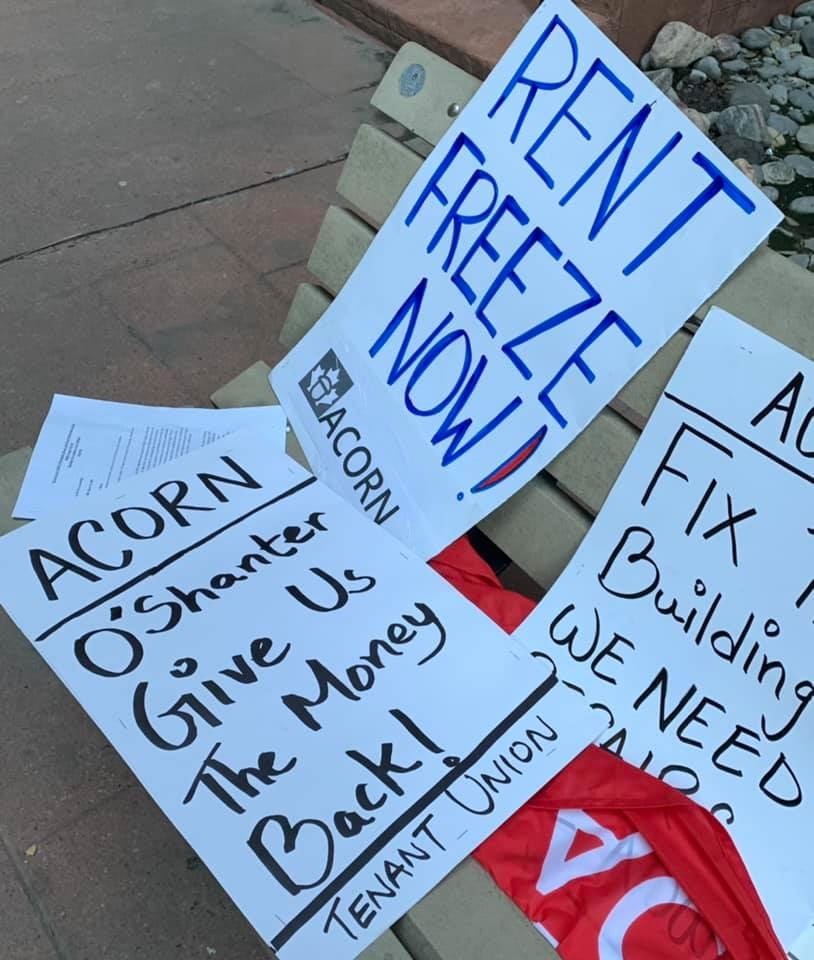 RENT
FREEZE
NOW!
ACORN
ACORN
O'Shanter
Give Us
The Money
Back!
TENANT UNION
FIX
Building
WE NEED